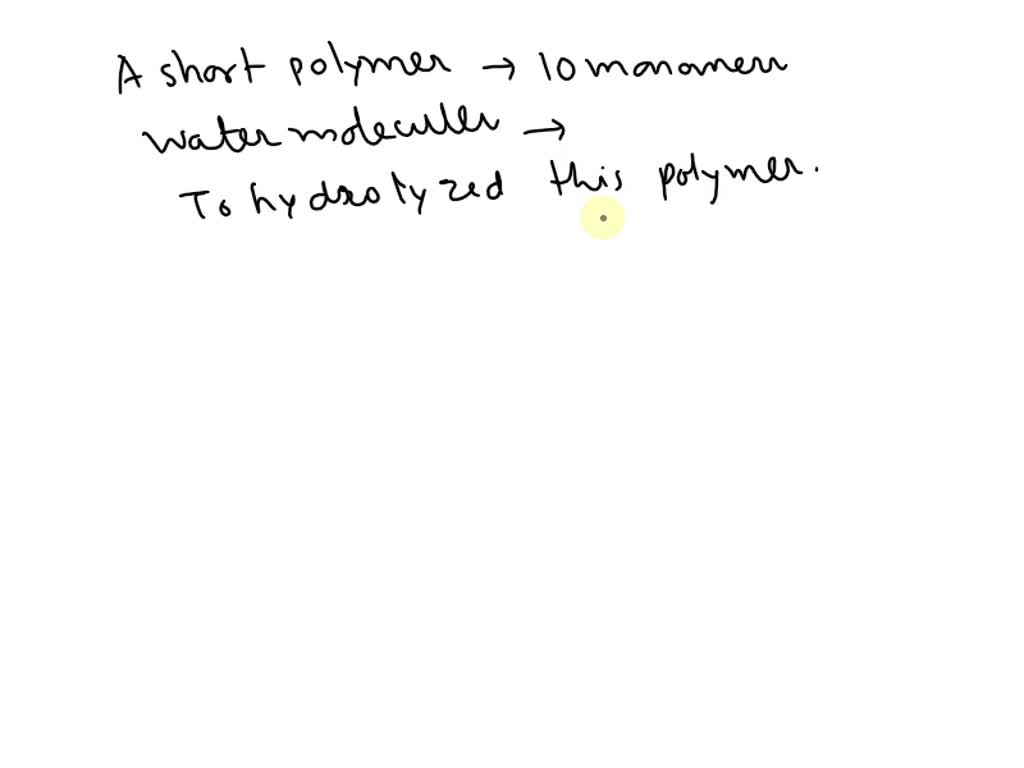 A short polymer → 10 monomers
water molecules →
To hydrolyzed this polymer.